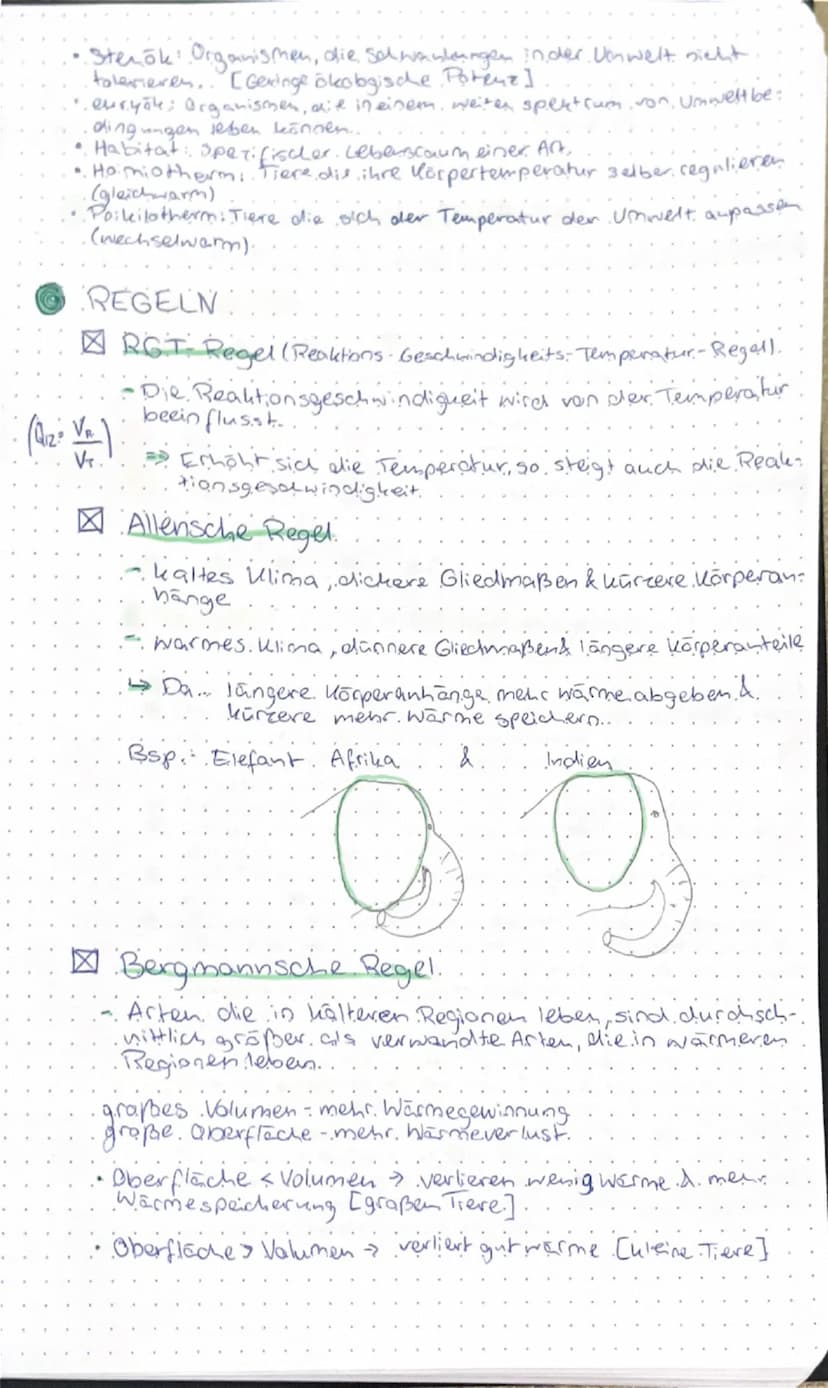 • Stenök: Organismen, die Schwankungen in der Umwelt nicht
tolerieren. [Geringe ökologische Potenz]
• euryök: Organismen, die in einem weiten spektrum von Umweltbe-
dingungen leben können.
• Habitat: Spezifischer Lebensraum einer Art.
• Homiotherm: Tiere die ihre Körpertemperatur selber regulieren
(gleichwarm)
• Poikilotherm: Tiere die sich der Temperatur der Umwelt anpassen
(wechselwarm)
REGELN
☒ RGT-Regel (Reaktions-Geschwindigkeits-Temperatur-Regel)
- Die Reaktionsgeschwindigkeit wird von der Temperatur
beeinflusst.
⇒ Erhöht sich die Temperatur, so steigt auch die Reak-
tionsgeschwindigkeit.
☒ Allensche Regel
- kaltes Klima, dickere Gliedmaßen & kürzere Körperan-
hänge
- warmes Klima, dünnere Gliedmaßen & längere Körperanteile
↳ Da... längere Körperanhänge mehr wärme abgeben &
kürzere mehr Wärme speichern..
Bsp.: Elefant Afrika & Indien
☒ Bergmannsche Regel
- Arten die in kälteren Regionen leben, sind durchsch-
nittlich größer als verwandte Arten, die in wärmeren
Regionen leben.
großes Volumen = mehr Wärmegewinnung
große Oberfläche - mehr Wärmeverlust
• Oberfläche < Volumen → verlieren wenig wärme & mehr
Wärmespeicherung [großen Tiere]
• Oberfläche > Volumen → verliert gut wärme [kleine Tiere]